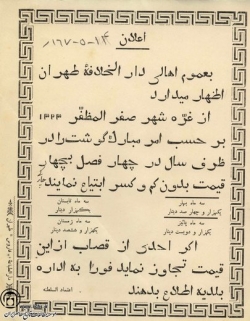 اعلان
۱۶۷-۵-۱۴
بعموم اهالی دار الخلافة طهران
اظهار میدارد
از غرّه شهر صفر المظفّر ۱۳۲۳
بر حسب امر مبارک گوشت را در
ظرف سال در چهار فصل بچهار
قیمت بدون کم و کسر ابتیاع نمایند
سه ماه بهار
یکهزار و چهار صد دینار
سه ماه تابستان
یکهزار دینار
سه ماه پائیز
یکهزار و دویست دینار
سه ماه زمستان
یکهزار و هشتصد دینار
اگر احدی از قصاب از این
قیمت تجاوز نماید فورا به اداره
بلدیه اطلاع بدهند
اعتماد السلطنه